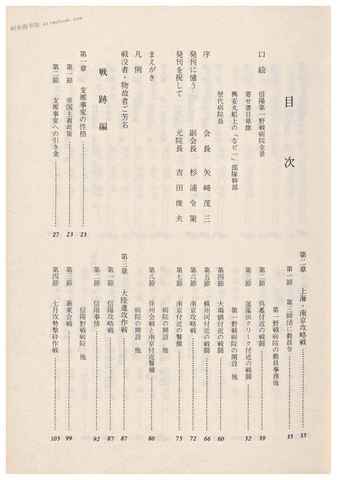 目次
口絵
信陽第一野戦病院全景
歴代病院長
序 会長 矢崎茂三
発刊に憶う 副会長 杉浦令蘭
発刊を祝して 元院長 吉田俊夫
まえがき
凡例
戦没者・物故者ご芳名
戦跡編
第一章 支那事変の性格 23
第一節 帝国主義政策 23
第二節 支那事変への引き金 27
第二章 上海・南京攻略戦 35
第一節 第三師団に動員令 35
第一野戦病院の動員事務他
第二節 呉淞付近の戦闘 39
第三節 蘊藻浜クリーク付近の戦闘 52
第一野戦病院の開設 他
第四節 大場鎮付近の戦闘 60
第五節 蘇州河付近の戦闘 66
第六節 南京攻略戦 72
第七節 南京付近の警備 75
病院の開設 他
第八節 徐州会戦と南京付近警備 80
病院の開設 他
第三章 大陸進攻作戦 87
第一節 信陽攻略戦 87
第二節 信陽事情 92
信陽野戦病院 他
第三節 襄東会戦 99
第四節 七月攻勢撃砕作戦 105